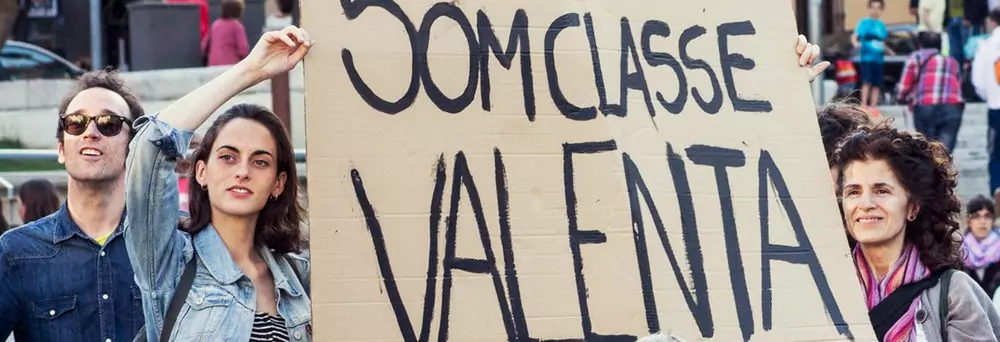 SOM CLASSE
VALENTA